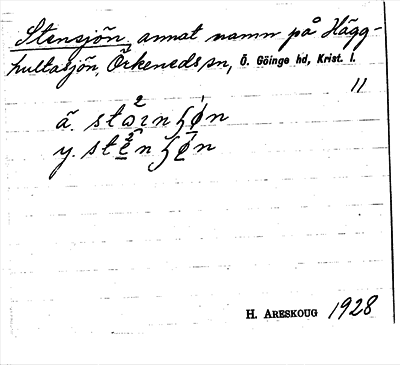 Stensjön, annat namn på Hägg-
hultasjön, Örkeneds sn, Ö. Göinge hd, Krist. l.
11
ä.
y.
H. ARESKOUG 1928